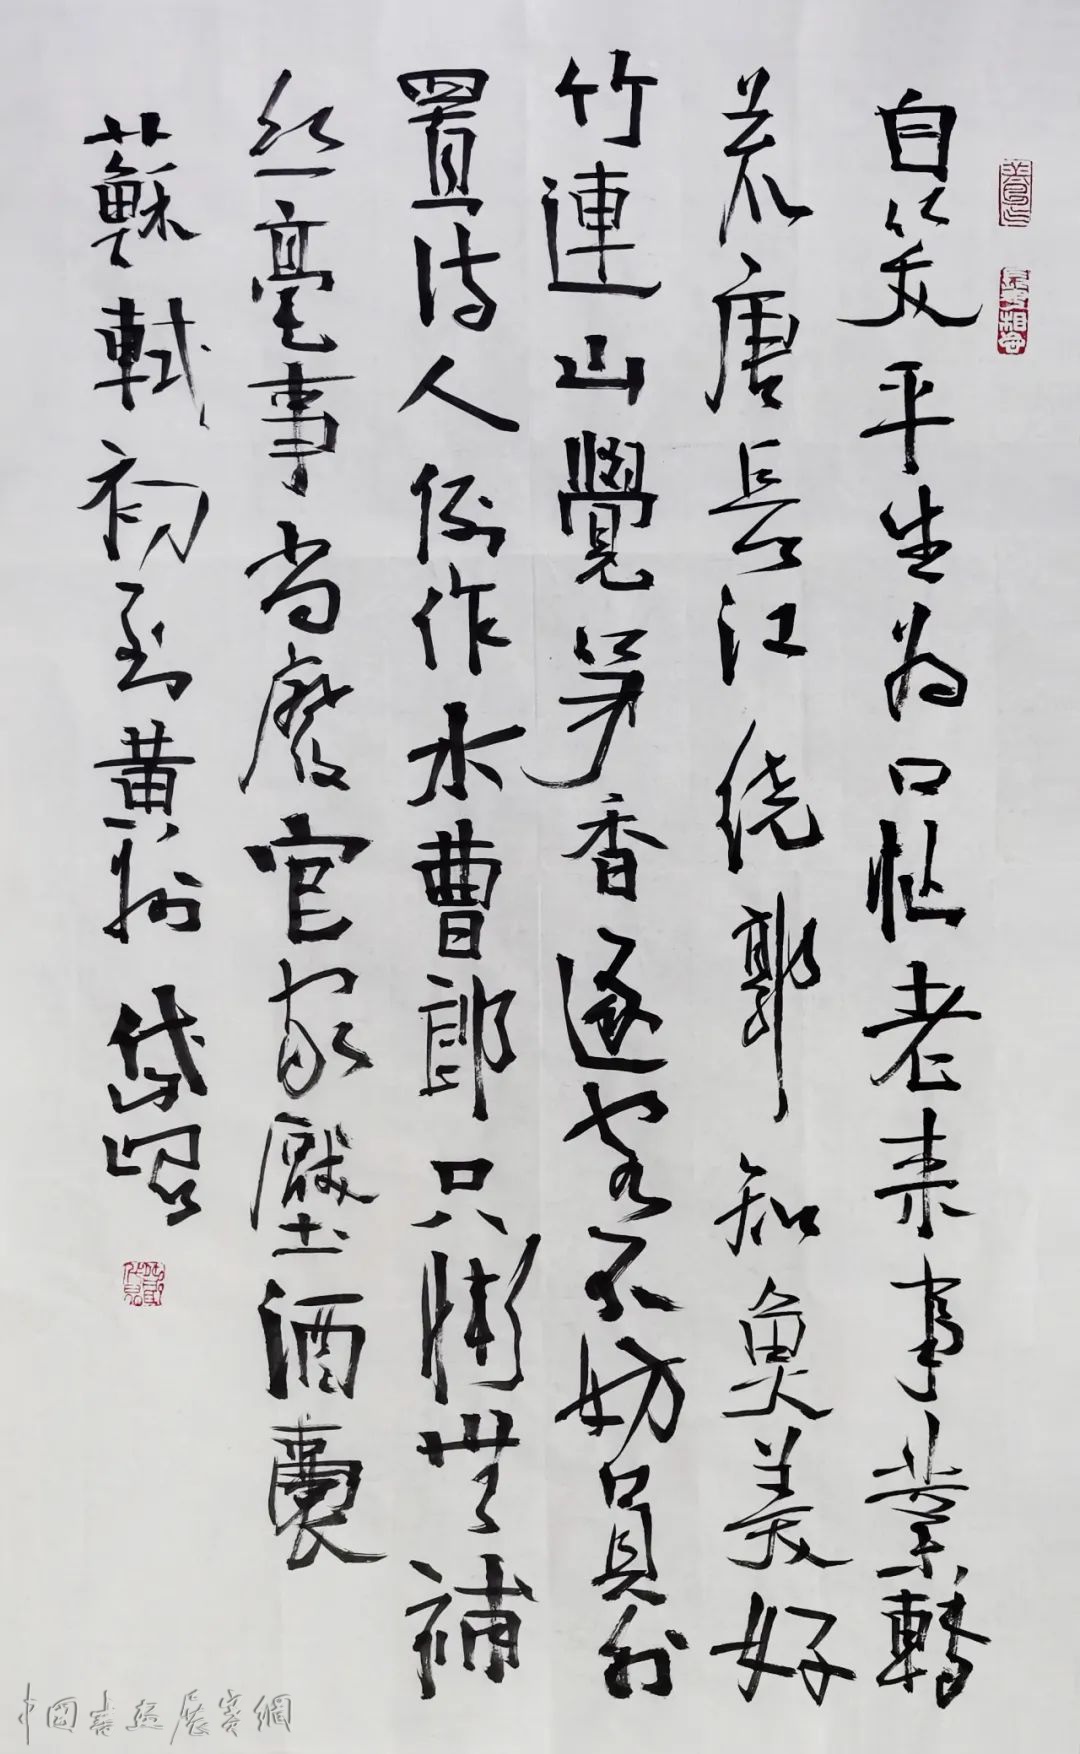 自笑平生为口忙老来事業轉
荒唐長江绕郭知魚美好
竹連山覺笋香逐客不妨員外
置诗人例作水曹郎只慚無補
丝毫事尚廢官家壓酒囊
蘇軾初到黄州 岱
中國書画展賽網